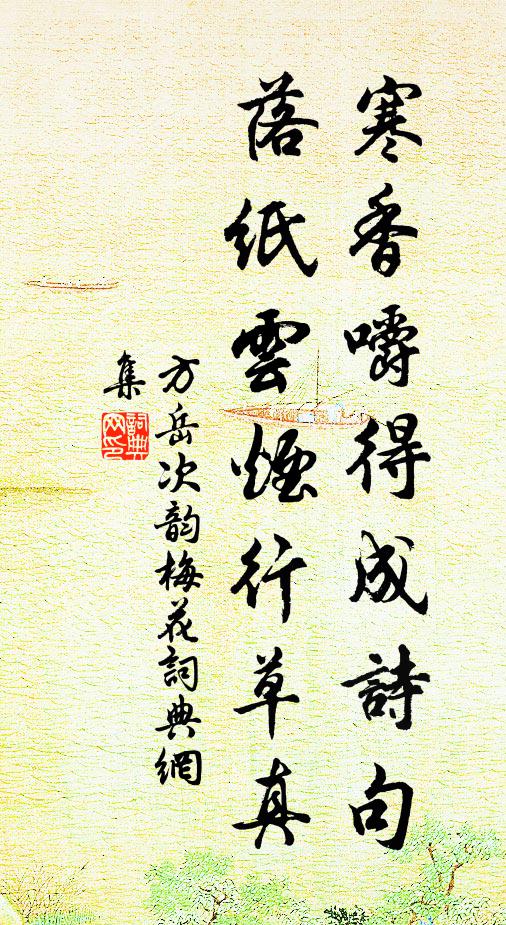 寒香嚼得成詩句
落紙雲煙行草真
方岳次韵梅花詞典網
集
詞典網印